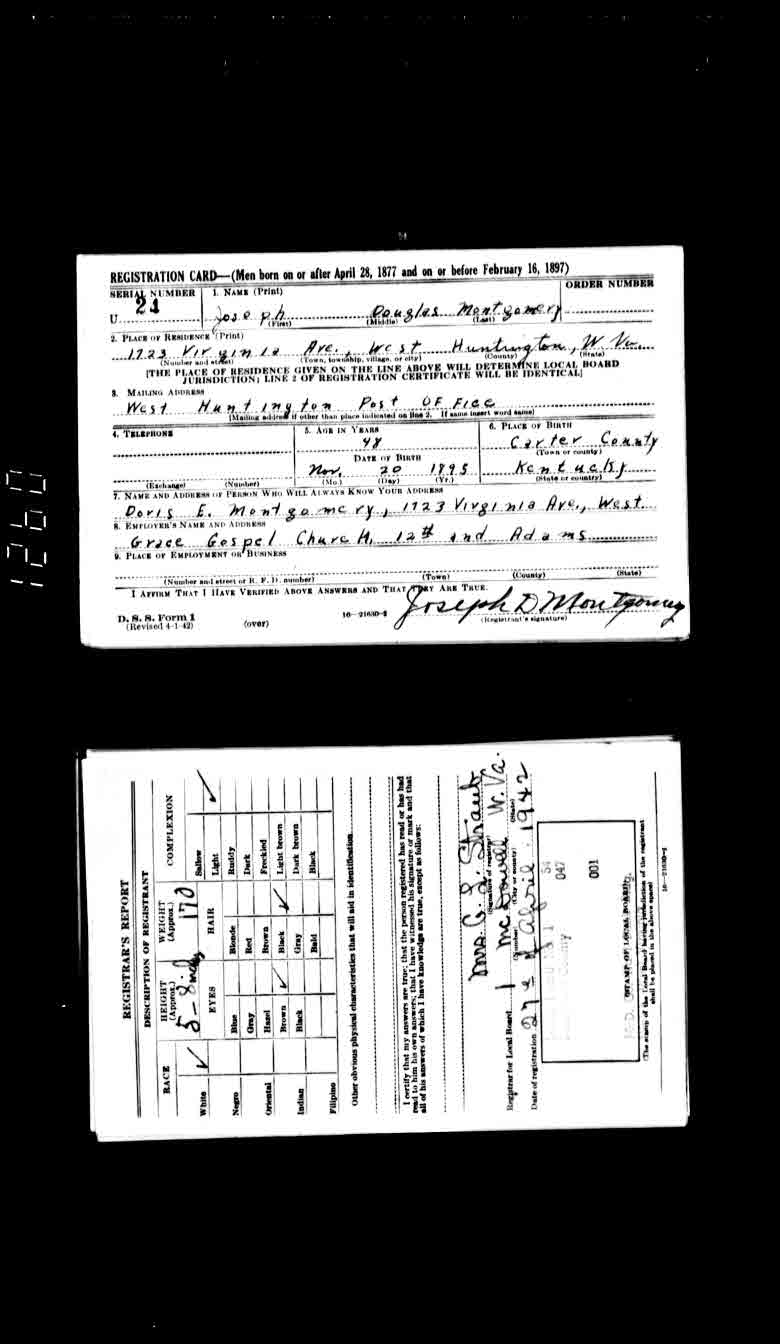 REGISTRATION CARD—(Men born on or after April 28, 1877 and on or before February 16, 1897)
SERIAL NUMBER 1. NAME (Print) ORDER NUMBER
U 21 Joseph Douglas Montgomery
(First) (Middle) (Last)
2. PLACE OF RESIDENCE (Print)
1723 Virginia Ave., West Huntington, W Va.
(Number and street) (Town, township, village, or city) (County) (State)
[THE PLACE OF RESIDENCE GIVEN ON THE LINE ABOVE WILL DETERMINE LOCAL BOARD
JURISDICTION; LINE 2 OF REGISTRATION CERTIFICATE WILL BE IDENTICAL]
3. MAILING ADDRESS
West Huntington Post Office
[Mailing address if other than place indicated on line 2. If same insert word same]
4. TELEPHONE 5. AGE IN YEARS 6. PLACE OF BIRTH
48 Carter County
(Town or county)
DATE OF BIRTH
Nov. 20 1895 Kentucky
(Exchange) (Number) (Mo.) (Day) (Yr.) (State or country)
7. NAME AND ADDRESS OF PERSON WHO WILL ALWAYS KNOW YOUR ADDRESS
Doris E. Montgomery, 1723 Virginia Ave., West
8. EMPLOYER'S NAME AND ADDRESS
Grace Gospel Church, 12th and Adams
9. PLACE OF EMPLOYMENT OR BUSINESS
(Number and street or R. F. D. number) (Town) (County) (State)
I AFFIRM THAT I HAVE VERIFIED ABOVE ANSWERS AND THAT THEY ARE TRUE.
Joseph D Montgomery
D. S. S. Form 1
(Revised 4-1-42) (over) 16—21630-2 (Registrant's signature)
1260
REGISTRAR'S REPORT
DESCRIPTION OF REGISTRANT
RACE HEIGHT (Approx.) WEIGHT (Approx.) COMPLEXION
5-8 170
EYES HAIR
White Blue Blonde Sallow
Light
Negro Gray Red Ruddy
Dark
Oriental Hazel Brown Freckled
Brown Black Light brown
Indian Black Gray Dark brown
Bald Black
Filipino
Other obvious physical characteristics that will aid in identification
I certify that my answers are true; that the person registered has read or has had
read to him his own answers; that I have witnessed his signature or mark and that
all of his answers of which I have knowledge are true, except as follows:
Mrs. C. L. Straub
(Signature of registrar)
Registrar for Local Board 1 McDowell W. Va.
(Number) (City or county) (State)
Date of registration 27th of April 1942
54
047
001
(STAMP OF LOCAL BOARD)
(The stamp of the Local Board having jurisdiction of the registrant
shall be placed in the above space)
16—21630-2